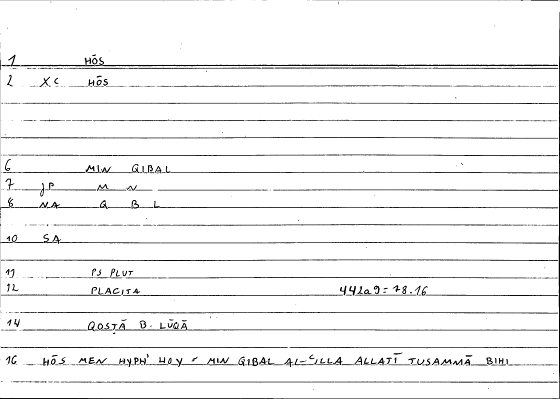 1 HŌS
2 XC HŌS
6 MIN QIBAL
7 JP M N
8 NA Q B L
10 SA
11 PS PLUT
12 PLACITA 442a9 = 78.16
14 QOSṬĀ B. LŪQĀ
16 HŌS MEN HYPH' HOY = MIN QIBAL AL-ʿILLA ALLATĪ TUSAMMĀ BIHI